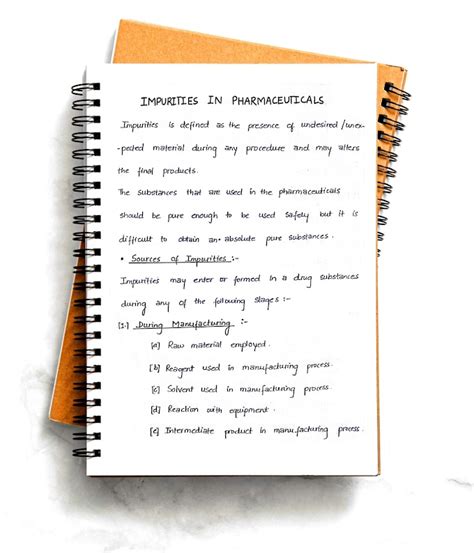 IMPURITIES IN PHARMACEUTICALS
Impurities is defined as the presence of undesired /unex-
-pected material during any procedure and may alters
the final products.
The substances that are used in the pharmaceuticals
should be pure enough to be used safely but it is
difficult to obtain an absolute pure substances.
• Sources of Impurities :-
Impurities may enter or formed in a drug substances
during any of the following stages :-
[1.] During Manufacturing :-
[a] Raw material employed.
[b] Reagent used in manufacturing process.
[c] Solvent used in manufacturing process.
[d] Reaction with equipment.
[e] Intermediate product in manufacturing process.